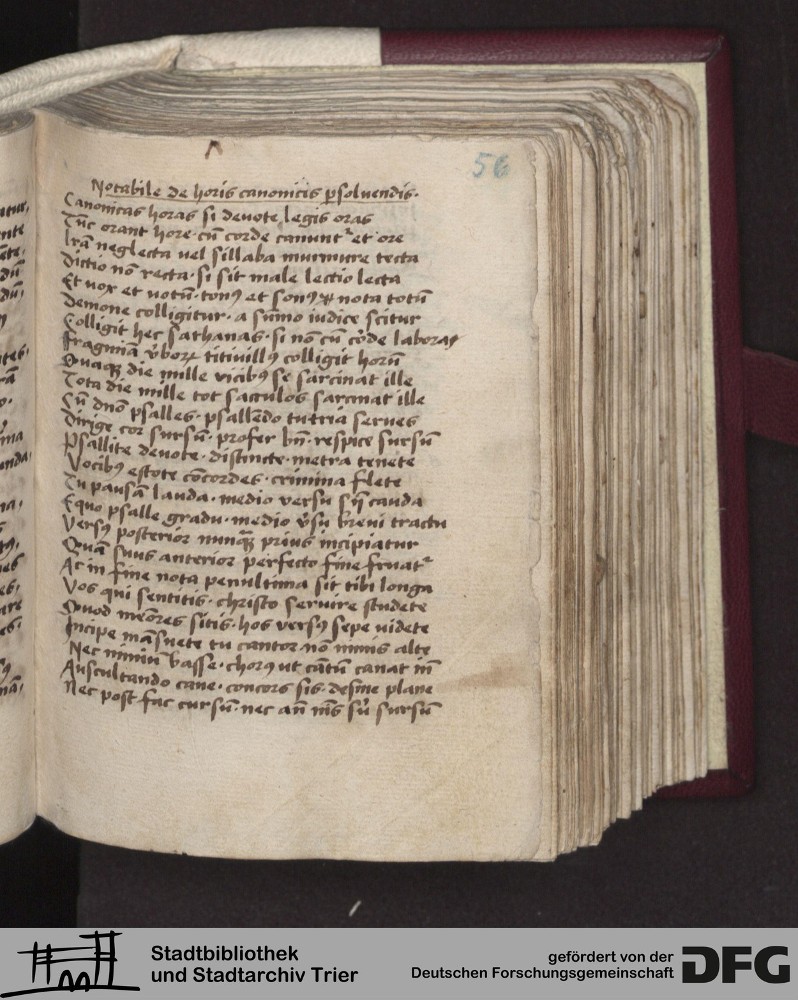 56
Notabile de horis canonicis ꝑsoluendis.
Canonicas horas si deuote legis oras
Tūc orant hore cū corde canunt᷑ et ore
Irā neglecta uel sillaba murmure tecta
Dictio nō recta si sit male lectio lecta
Et vox et uotū tonꝰ et sonꝰ nota totū
Demone colligitur a sūmo iudice scitur
Colligit hec sathanas si nō cū corde laboras
Fragmīa v̓boꝝ titiuillꝰ colligit horū
Quaqꝫ die mille vicibꝰ se sarcinat ille
Tota die mille tot sacculos sarcinat ille
Cū dnō psalles psallēdo tu tria serues
Dirige cor sursū profer bn̄ respice sursū
Psallite deuote distincte metra tenete
Vocibꝰ estote cōcordes crimina flete
Tu pausā lauda medio versu cauda
Equo psalle gradu medio v̓su breui tractu
Versꝰ posterior nunqꝫ prius incipiatur
Quā suus anterior perfecto fine fruat᷑
Ac in fine nota penultima sit tibi longa
Vos qui sentitis christo seruire studete
Quod meōres sitis hos versꝰ sepe uidete
Incipe māsuete tu cantor nō nimis alte
Nec nimiū basse chorꝰ ut cātū canat
Auscultando cane concors sis desine plane
Nec post fac cursū nec an̄ sursū
Stadtbibliothek
und Stadtarchiv Trier
gefördert von der
Deutschen Forschungsgemeinschaft
DFG